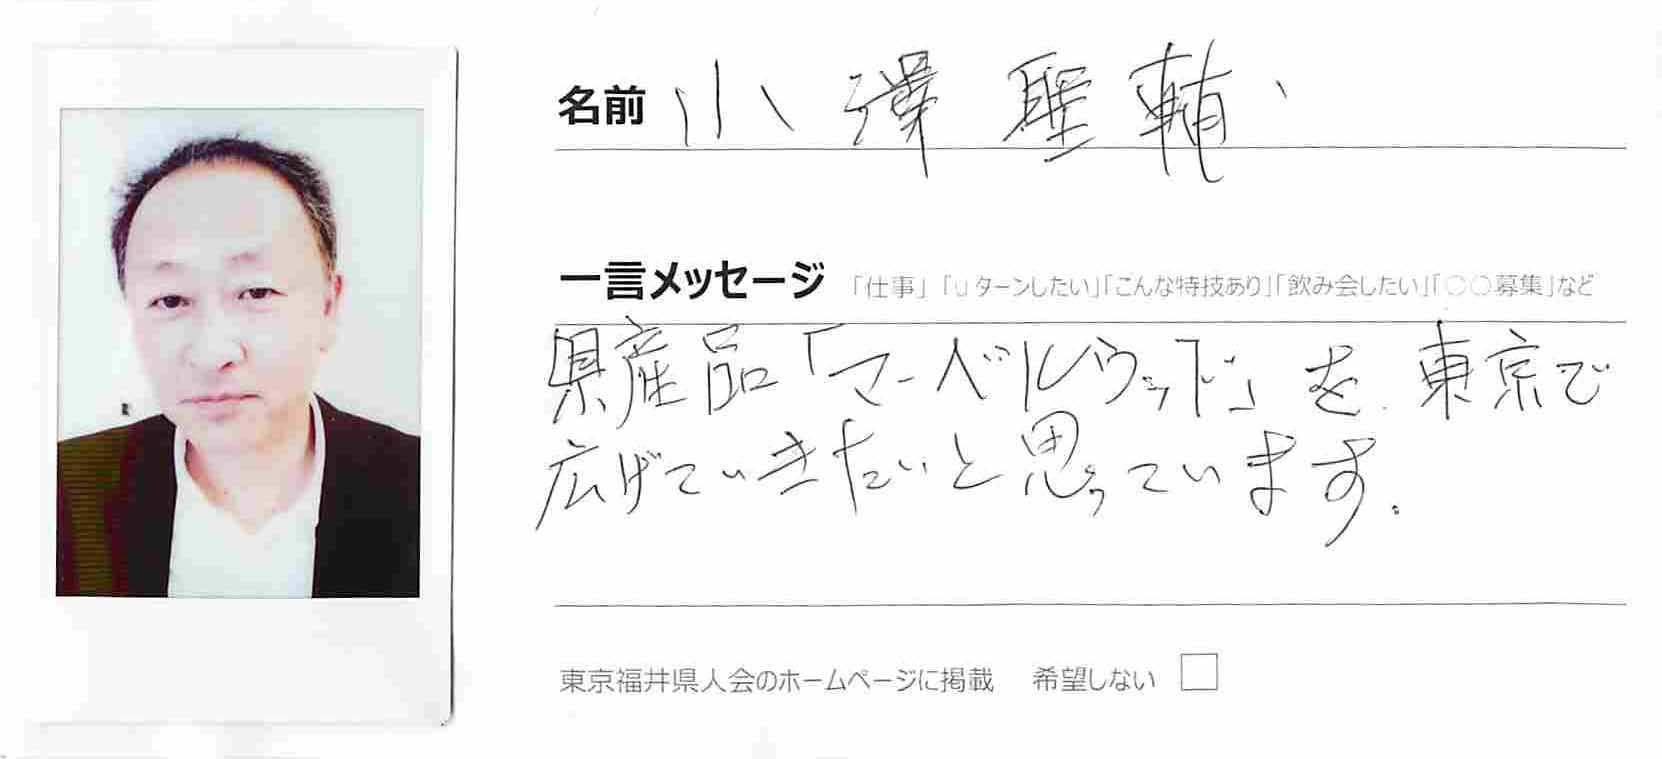 名前 小澤聖輔
一言メッセージ 「仕事」「uターンしたい」「こんな特技あり」「飲み会したい」「〇〇募集」など
県産品「マーベルウッド」を、東京で
広げていきたいと思っています。
東京福井県人会のホームページに掲載 希望しない □